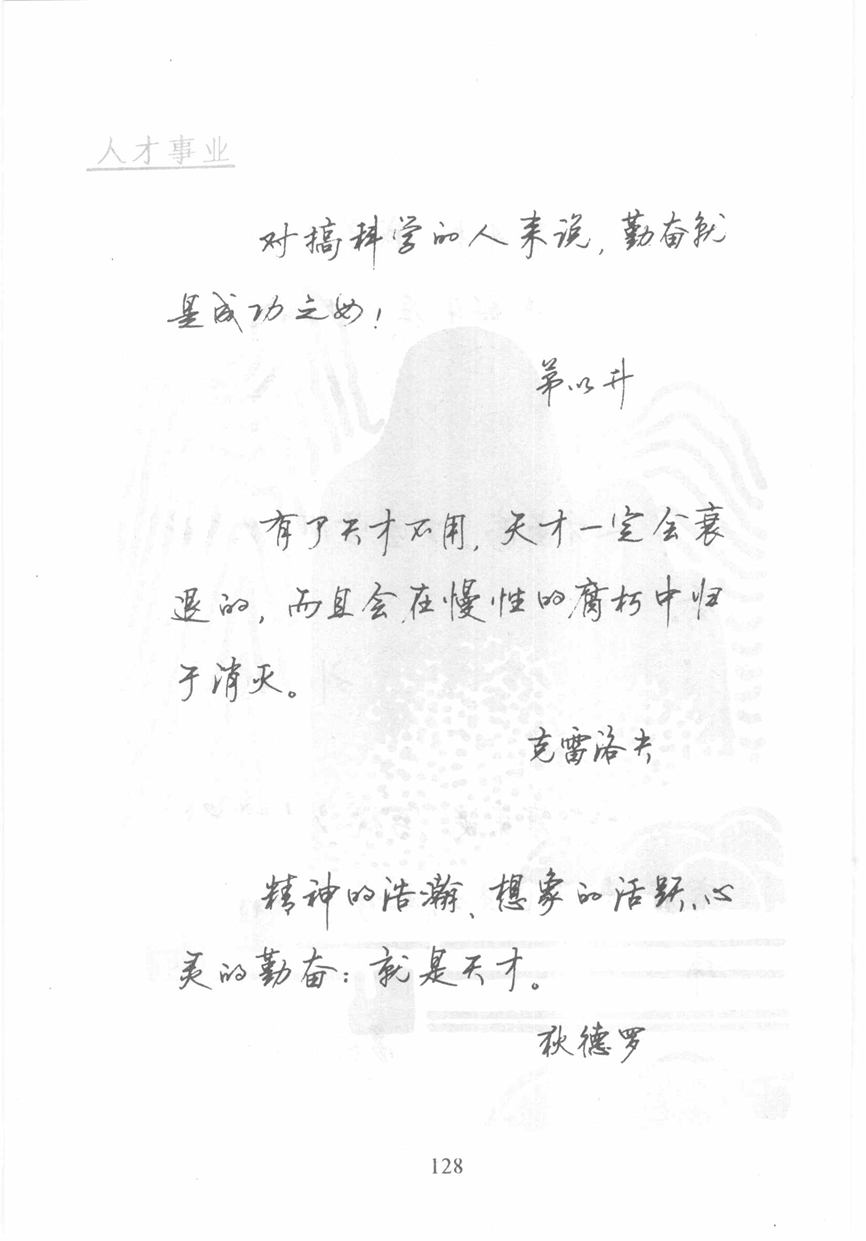 人才事业
对搞科学的人来说,勤奋就
是成功之母!
茅以升
有了天才不用,天才一定会衰
退的,而且会在慢性的腐朽中归
于消灭。
克雷洛夫
精神的浩瀚、想象的活跃、心
灵的勤奋:就是天才。
狄德罗
128